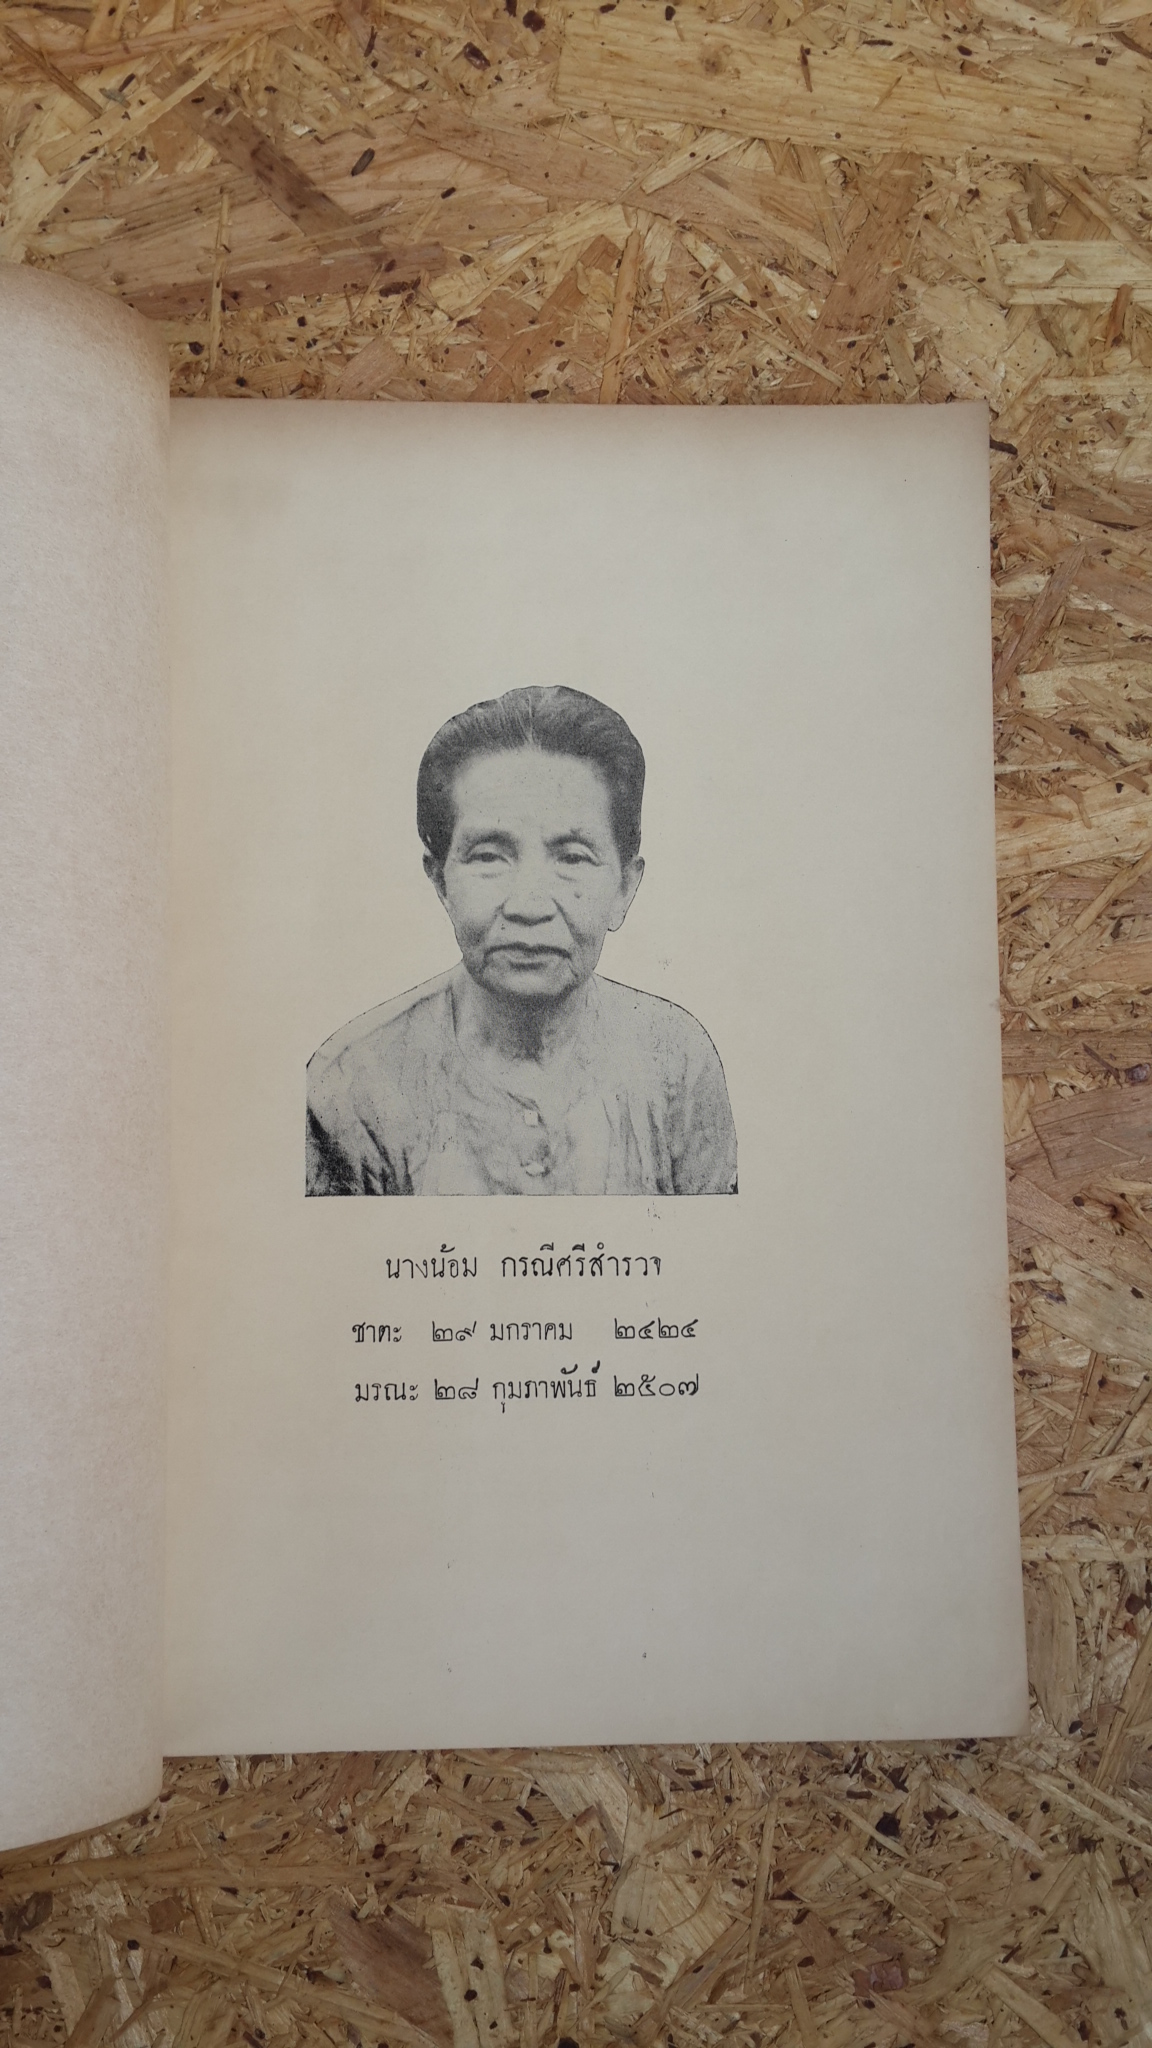 นางน้อม กรณีศรีสำรวจ
ชาตะ ๒๙ มกราคม ๒๔๒๔
มรณะ ๒๘ กุมภาพันธ์ ๒๕๐๗